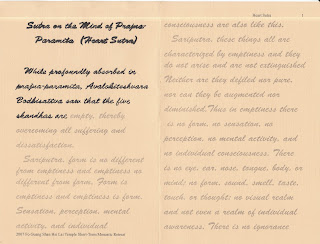 Sutra on the Mind of Prajna
Paramita (Heart Sutra)
While profoundly absorbed in
prajna-paramita, Avalokiteshvara
Bodhisattva saw that the five
skandhas are empty, thereby
overcoming all suffering and
dissatisfaction.
Sariputra, form is no different
from emptiness and emptiness no
different from form. Form is
emptiness and emptiness is form.
Sensation, perception, mental
activity, and individual
2007 Fo Guang Shan Hsi Lai Temple Short-Term Monastic Retreat
Heart Sutra 1
consciousness are also like this.
Sariputra, these things all are
characterized by emptiness and they
do not arise and are not extinguished
Neither are they defiled nor pure,
nor can they be augmented nor
diminished. Thus in emptiness there
is no form, no sensation, no
perception, no mental activity, and
no individual consciousness. There
is no eye, ear, nose, tongue, body, or
mind; no form, sound, smell, taste,
touch, or thought; no visual realm
and not even a realm of individual
awareness. There is no ignorance